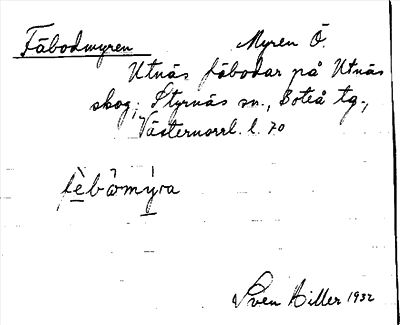 Fäbodmyren Myren Ö.
Utnäs fäbodar på Utnäs
skog, Styrnäs sn., Boteå tg.,
Västernorrl. l. 70
fèbòmýra
Sven Hiller 1932